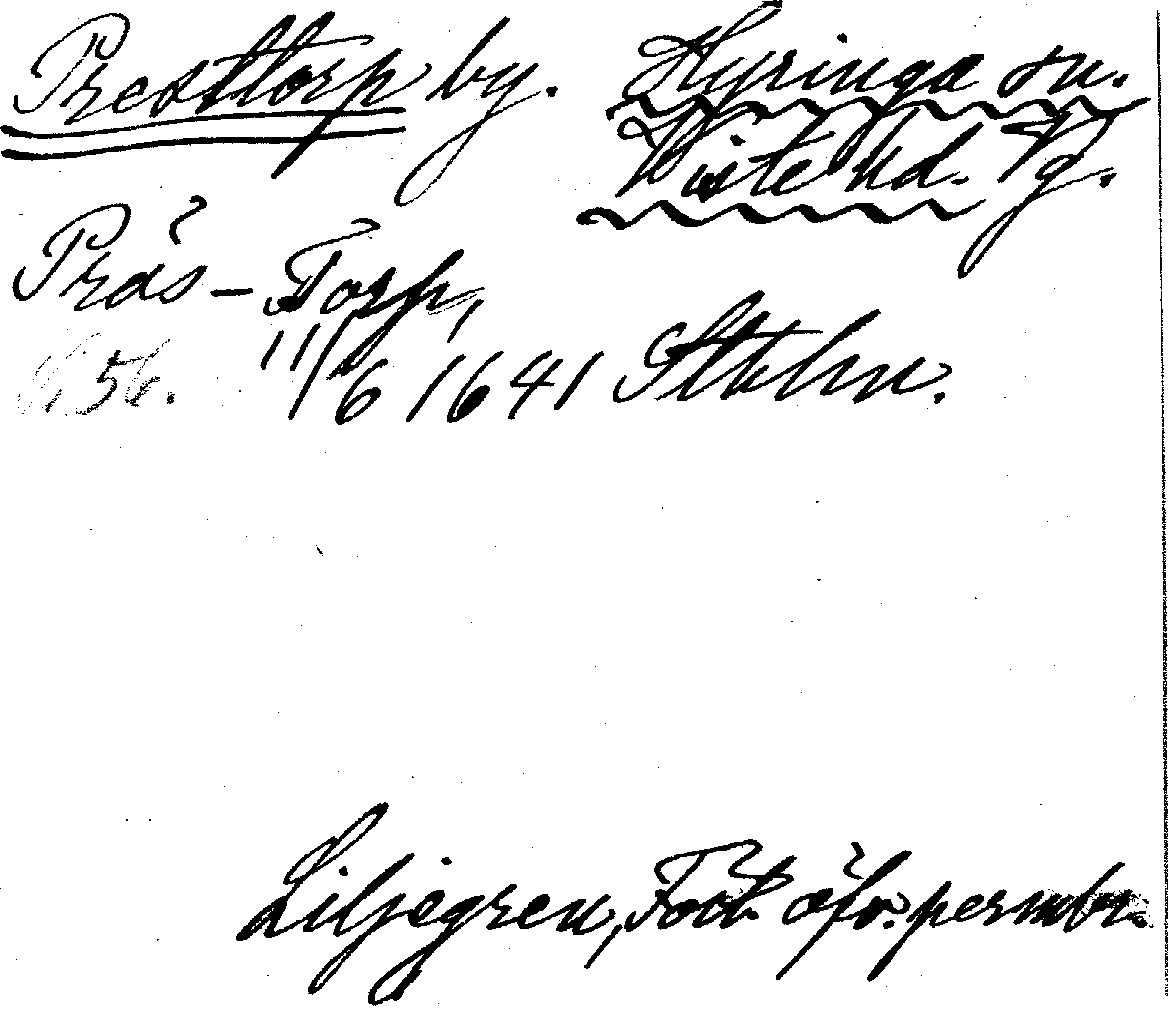 Presttorp by. Hyringa sn.
Wiste hd. Vg.
Präs-Torp,
11/6 1641 Sthlm.
Liljegren, Fört. öfv. permbr.